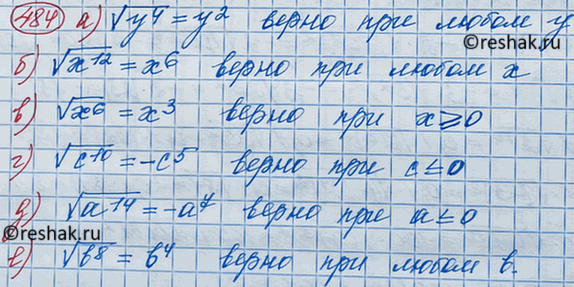 484 а) √y⁴ = y² верно при любом y
©reshak.ru
б) √x¹² = x⁶ верно при любом x
в) √x⁶ = x³ верно при x ⩾ 0
г) √c¹⁰ = -c⁵ верно при c ≤ 0
д) √a¹⁴ = -a⁷ верно при a ≤ 0
©reshak.ru
е) √b⁸ = b⁴ верно при любом b.